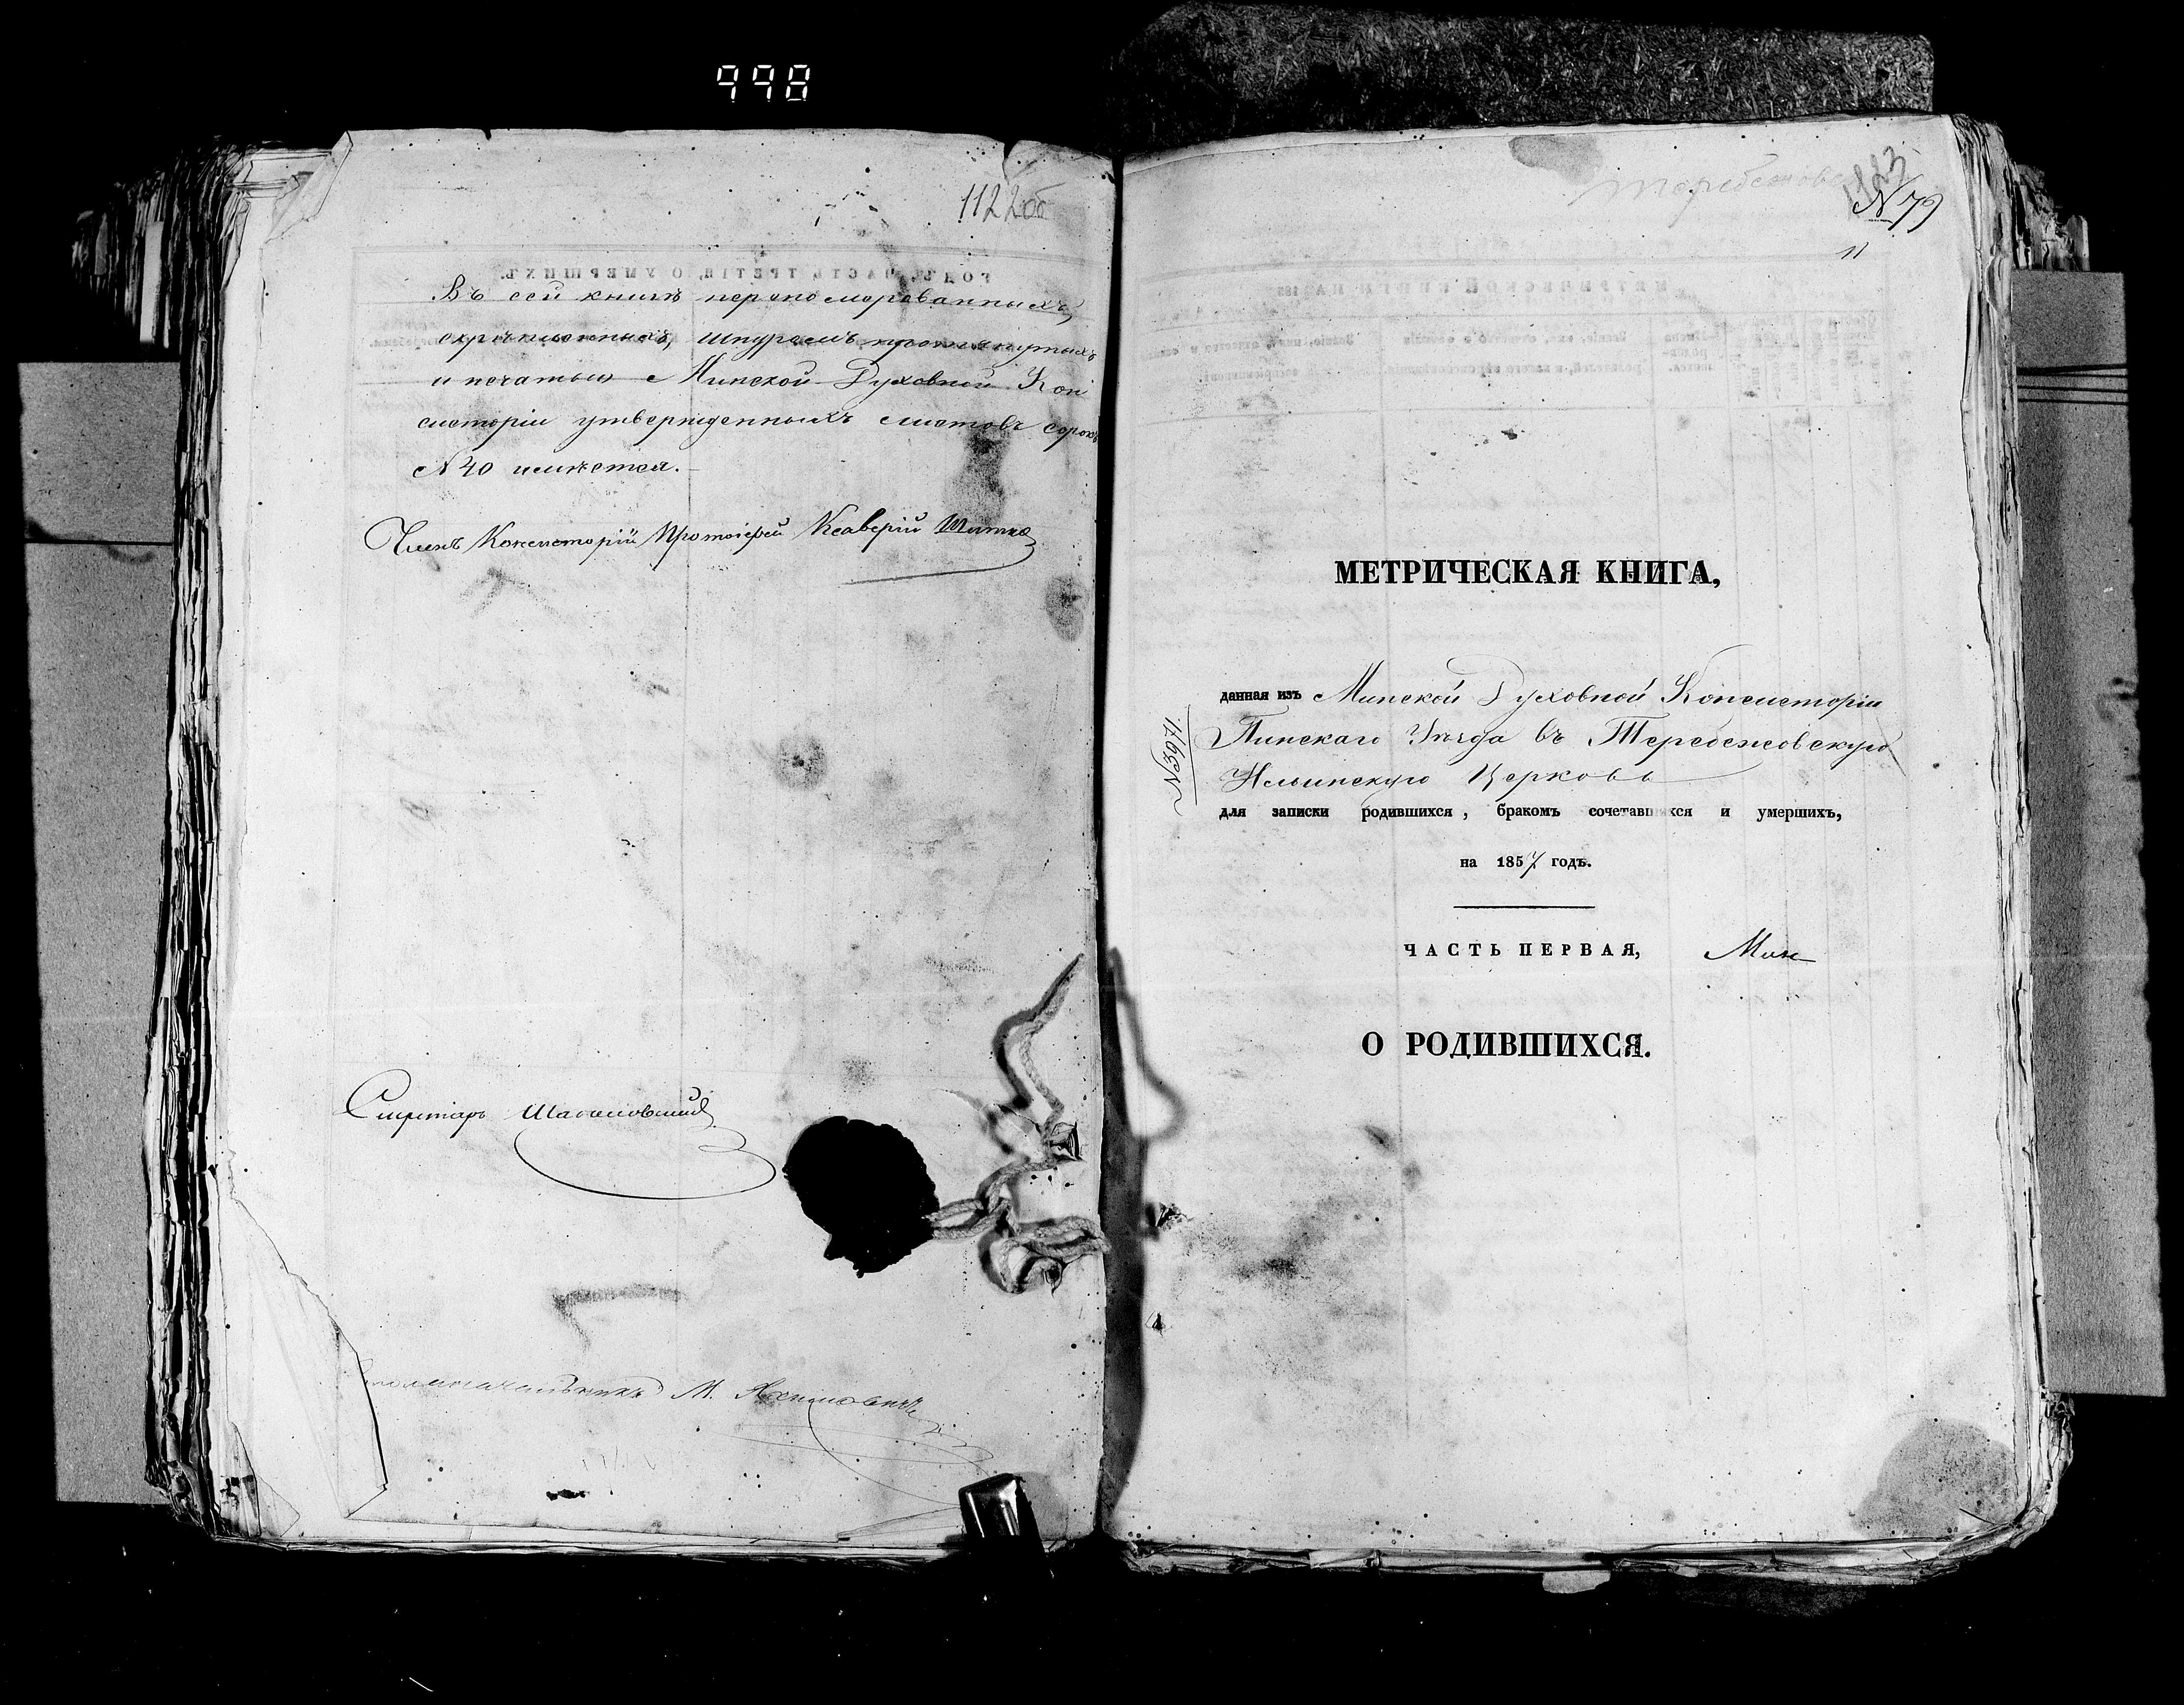 998
1122об
Въ сей книгѣ переномерованныхъ,
скрѣпленныхъ, шнуромъ протянутыхъ
и печатью Минской Духовной Кон
систоріи утвержденныхъ листовъ сорокъ
№ 40 имѣется.
Членъ Консисторіи Протоіерей Ксаверій
Секретарь
Столоначальникъ М. Яхимовичъ
1123
№ 79
МЕТРИЧЕСКАЯ КНИГА,
данная изъ Минской Духовной Консисторіи
Пинскаго Уѣзда въ Теребежовскую
Ильинскую Церковь
№3971.
для записки родившихся, бракомъ сочетавшихся и умершихъ,
на 1857 годъ.
ЧАСТЬ ПЕРВАЯ, Мин
О РОДИВШИХСЯ.